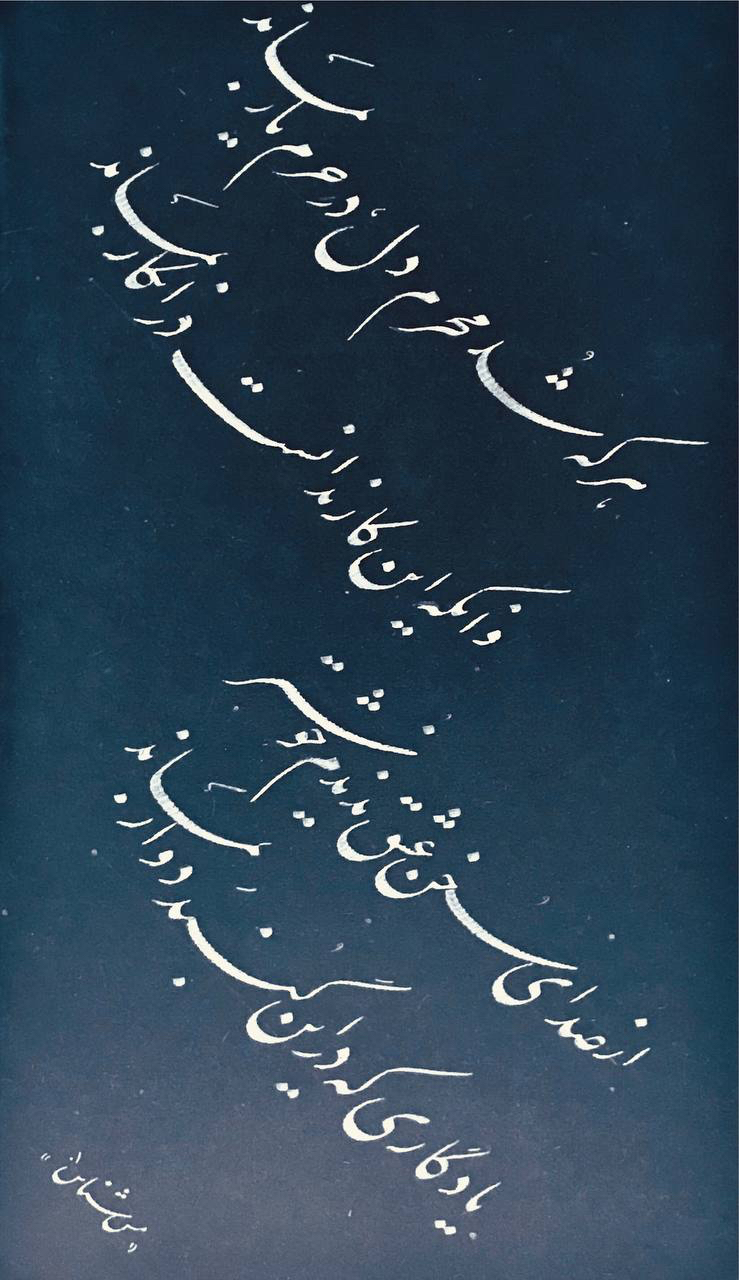 هر که شد محرم دل در حرم یار بماند
وانکه این کار ندانست در انکار بماند
از صدای سخن عشق ندیدم خوشتر
یادگاری که در این گنبد دوار بماند